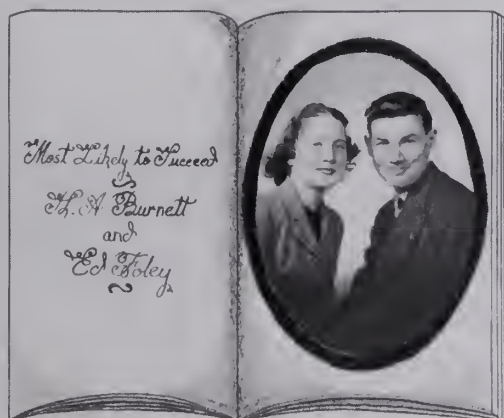 Most Likely to Succeed
H. A Burnett
and
Ed Foley